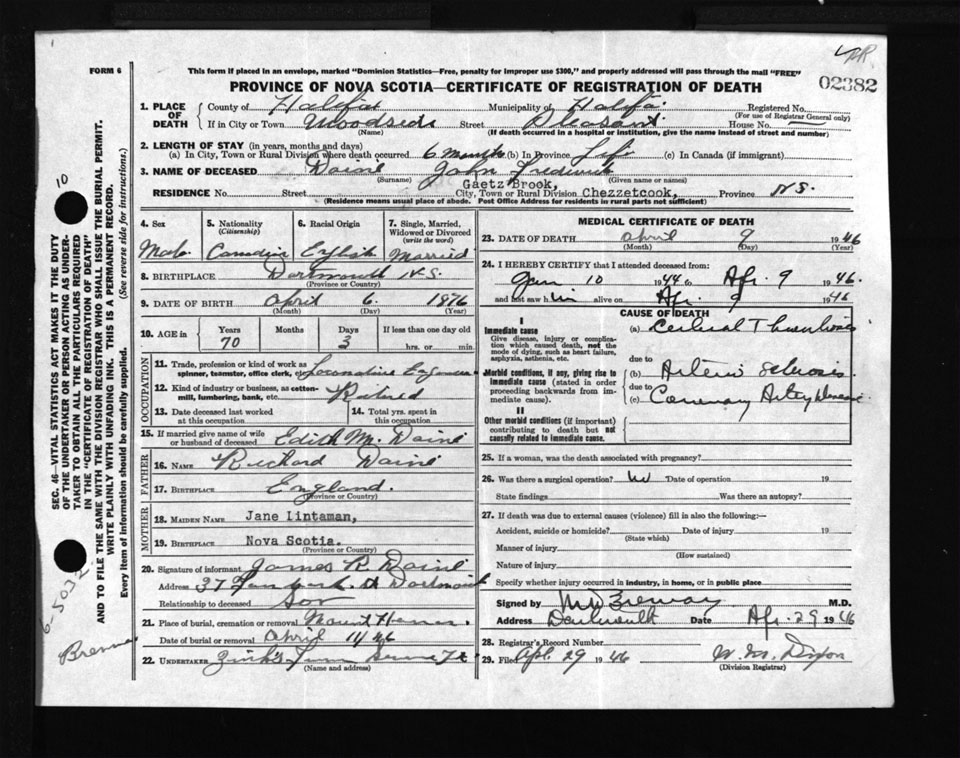 FORM 6
This form if placed in an envelope, marked "Dominion Statistics—Free, penalty for improper use $300," and properly addressed will pass through the mail "FREE"
PROVINCE OF NOVA SCOTIA—CERTIFICATE OF REGISTRATION OF DEATH
02382
1. PLACE OF DEATH
County of Halifax Municipality of Halifax Registered No.
(For use of Registrar General only)
If in City or Town Woodside Street Pleasant House No.
(Name) (If death occurred in a hospital or institution, give the name instead of street and number)
2. LENGTH OF STAY (in years, months and days)
(a) In City, Town or Rural Division where death occurred 6 months (b) In Province Life (c) In Canada (if immigrant)
3. NAME OF DECEASED Daine John Frederick
(Surname) (Given name or names)
Gaetz Brook,
RESIDENCE No. Street City, Town or Rural Division Chezzetcook, Province N.S.
(Residence means usual place of abode. Post Office Address for residents in rural parts not sufficient)
4. Sex
Male
5. Nationality (Citizenship)
Canadian
6. Racial Origin
English
7. Single, Married, Widowed or Divorced (write the word)
Married
8. BIRTHPLACE Dartmouth N.S.
(Province or Country)
9. DATE OF BIRTH April 6. 1876
(Month) (Day) (Year)
10. AGE in
Years Months Days If less than one day old
70 3 hrs. or min.
OCCUPATION
11. Trade, profession or kind of work as spinner, teamster, office clerk, etc. Locomotive Engineer
12. Kind of industry or business, as cotton-mill, lumbering, bank, etc. Retired
13. Date deceased last worked at this occupation
14. Total yrs. spent in this occupation
15. If married give name of wife or husband of deceased Edith M. Daine
FATHER
16. NAME Richard Daine
17. BIRTHPLACE England.
(Province or Country)
MOTHER
18. MAIDEN NAME Jane Lintaman,
19. BIRTHPLACE Nova Scotia.
(Province or Country)
20. Signature of informant James R Daine
Address 37 St Dartmouth
Relationship to deceased Son
21. Place of burial, cremation or removal Mount Hermon.
Date of burial or removal April 11/46
22. UNDERTAKER Zink's
(Name and address)
MEDICAL CERTIFICATE OF DEATH
23. DATE OF DEATH April 9 1946
(Month) (Day) (Year)
24. I HEREBY CERTIFY that I attended deceased from:
Jan 10 1944 to Apr. 9 1946.
and last saw him alive on Apr. 9 1946
CAUSE OF DEATH
I
Immediate cause
Give disease, injury or complication which caused death, not the mode of dying, such as heart failure, asphyxia, asthenia, etc.
(a) Cerebral Thrombosis
due to
Morbid conditions, if any, giving rise to immediate cause (stated in order proceeding backwards from immediate cause).
(b) Arterio Sclerosis
due to
(c) Coronary Artery Disease
II
Other morbid conditions (if important) contributing to death but not causally related to immediate cause.
25. If a woman, was the death associated with pregnancy?
26. Was there a surgical operation? No Date of operation 19
State findings Was there an autopsy?
27. If death was due to external causes (violence) fill in also the following:—
Accident, suicide or homicide? Date of injury 19
(State which)
Manner of injury
(How sustained)
Nature of injury
Specify whether injury occurred in industry, in home, or in public place
Signed by M.D.
Address Dartmouth Date Apr. 29 1946
28. Registrar's Record Number
29. Filed Apl. 29 1946 W. M. Dixon
(Division Registrar)
SEC. 46—VITAL STATISTICS ACT MAKES IT THE DUTY
OF THE UNDERTAKER OR PERSON ACTING AS UNDER-
TAKER TO OBTAIN ALL THE PARTICULARS REQUIRED
IN THE "CERTIFICATE OF REGISTRATION OF DEATH"
AND TO FILE THE SAME WITH THE DIVISION REGISTRAR WHO SHALL ISSUE THE BURIAL PERMIT.
WRITE PLAINLY WITH UNFADING INK. THIS IS A PERMANENT RECORD.
Every item of information should be carefully supplied. (See reverse side for instructions.)
10